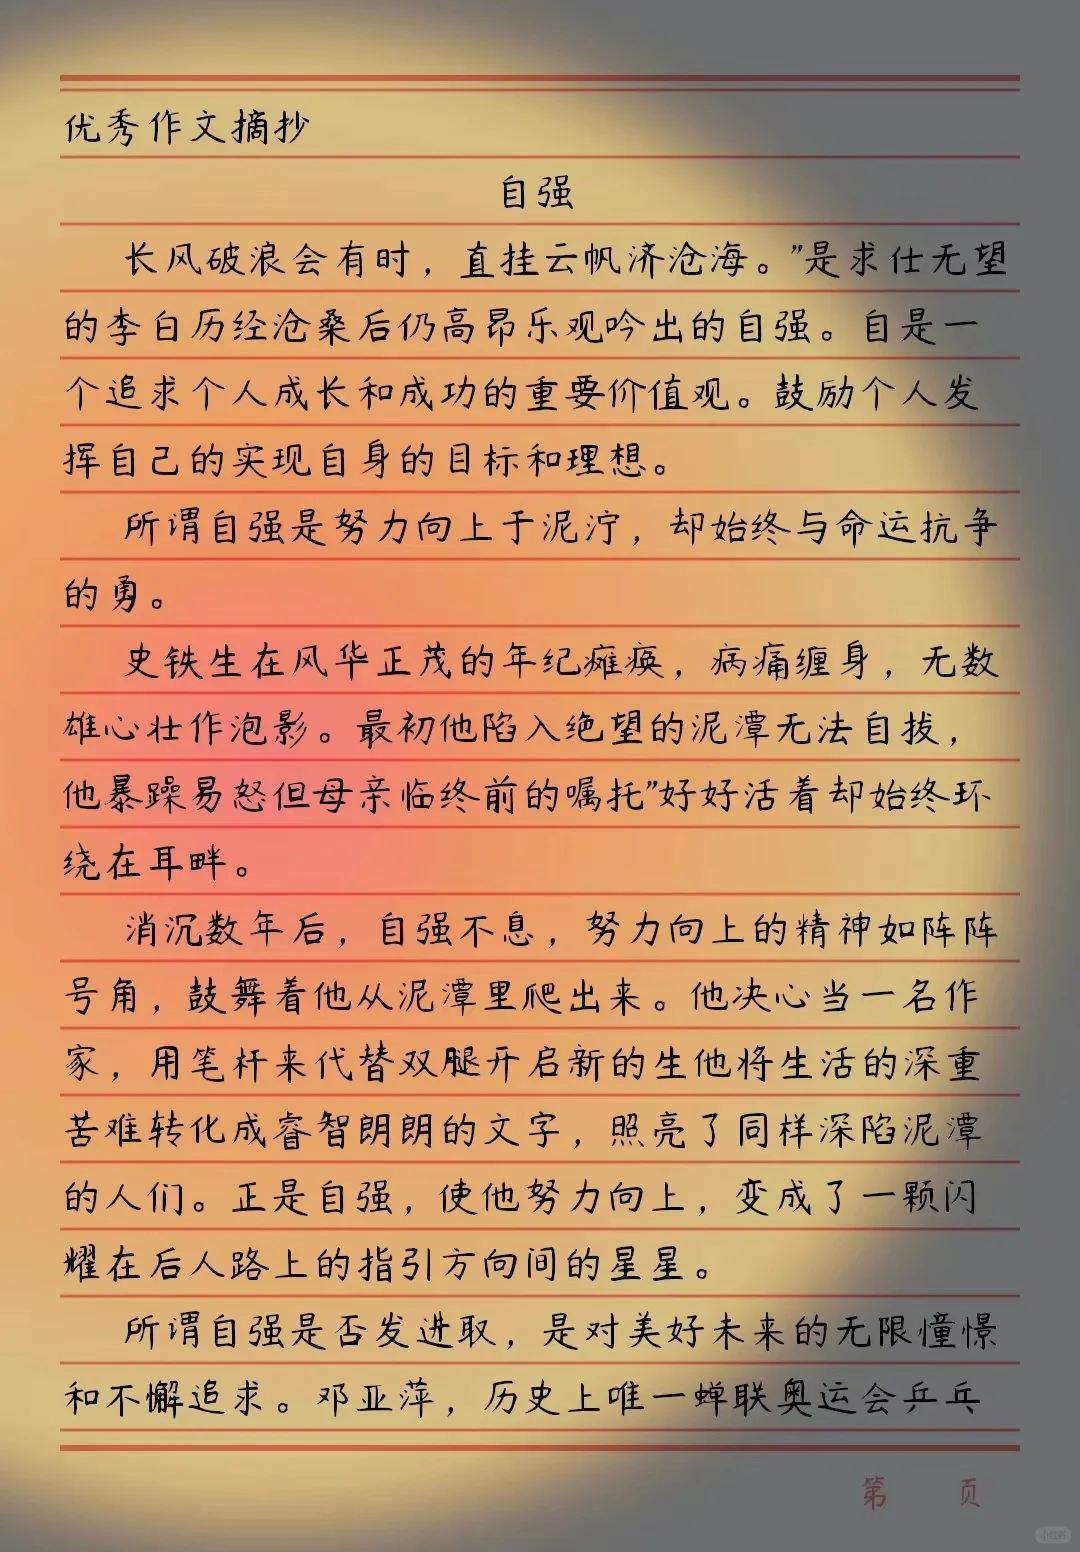 优秀作文摘抄
自强
长风破浪会有时，直挂云帆济沧海。”是求仕无望
的李白历经沧桑后仍高昂乐观吟出的自强。自是一
个追求个人成长和成功的重要价值观。鼓励个人发
挥自己的实现自身的目标和理想。
所谓自强是努力向上于泥泞，却始终与命运抗争
的勇。
史铁生在风华正茂的年纪瘫痪，病痛缠身，无数
雄心壮作泡影。最初他陷入绝望的泥潭无法自拔，
他暴躁易怒但母亲临终前的嘱托”好好活着却始终环
绕在耳畔。
消沉数年后，自强不息，努力向上的精神如阵阵
号角，鼓舞着他从泥潭里爬出来。他决心当一名作
家，用笔杆来代替双腿开启新的生他将生活的深重
苦难转化成睿智朗朗的文字，照亮了同样深陷泥潭
的人们。正是自强，使他努力向上，变成了一颗闪
耀在后人路上的指引方向间的星星。
所谓自强是否发进取，是对美好未来的无限憧憬
和不懈追求。邓亚萍，历史上唯一蝉联奥运会乒乓
第 页
小红书